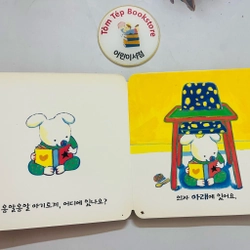 Tôm Tép Bookstore
어린이서점
옹알옹알 아기토끼, 어디에 있나요?
의자 아래에 있어요.